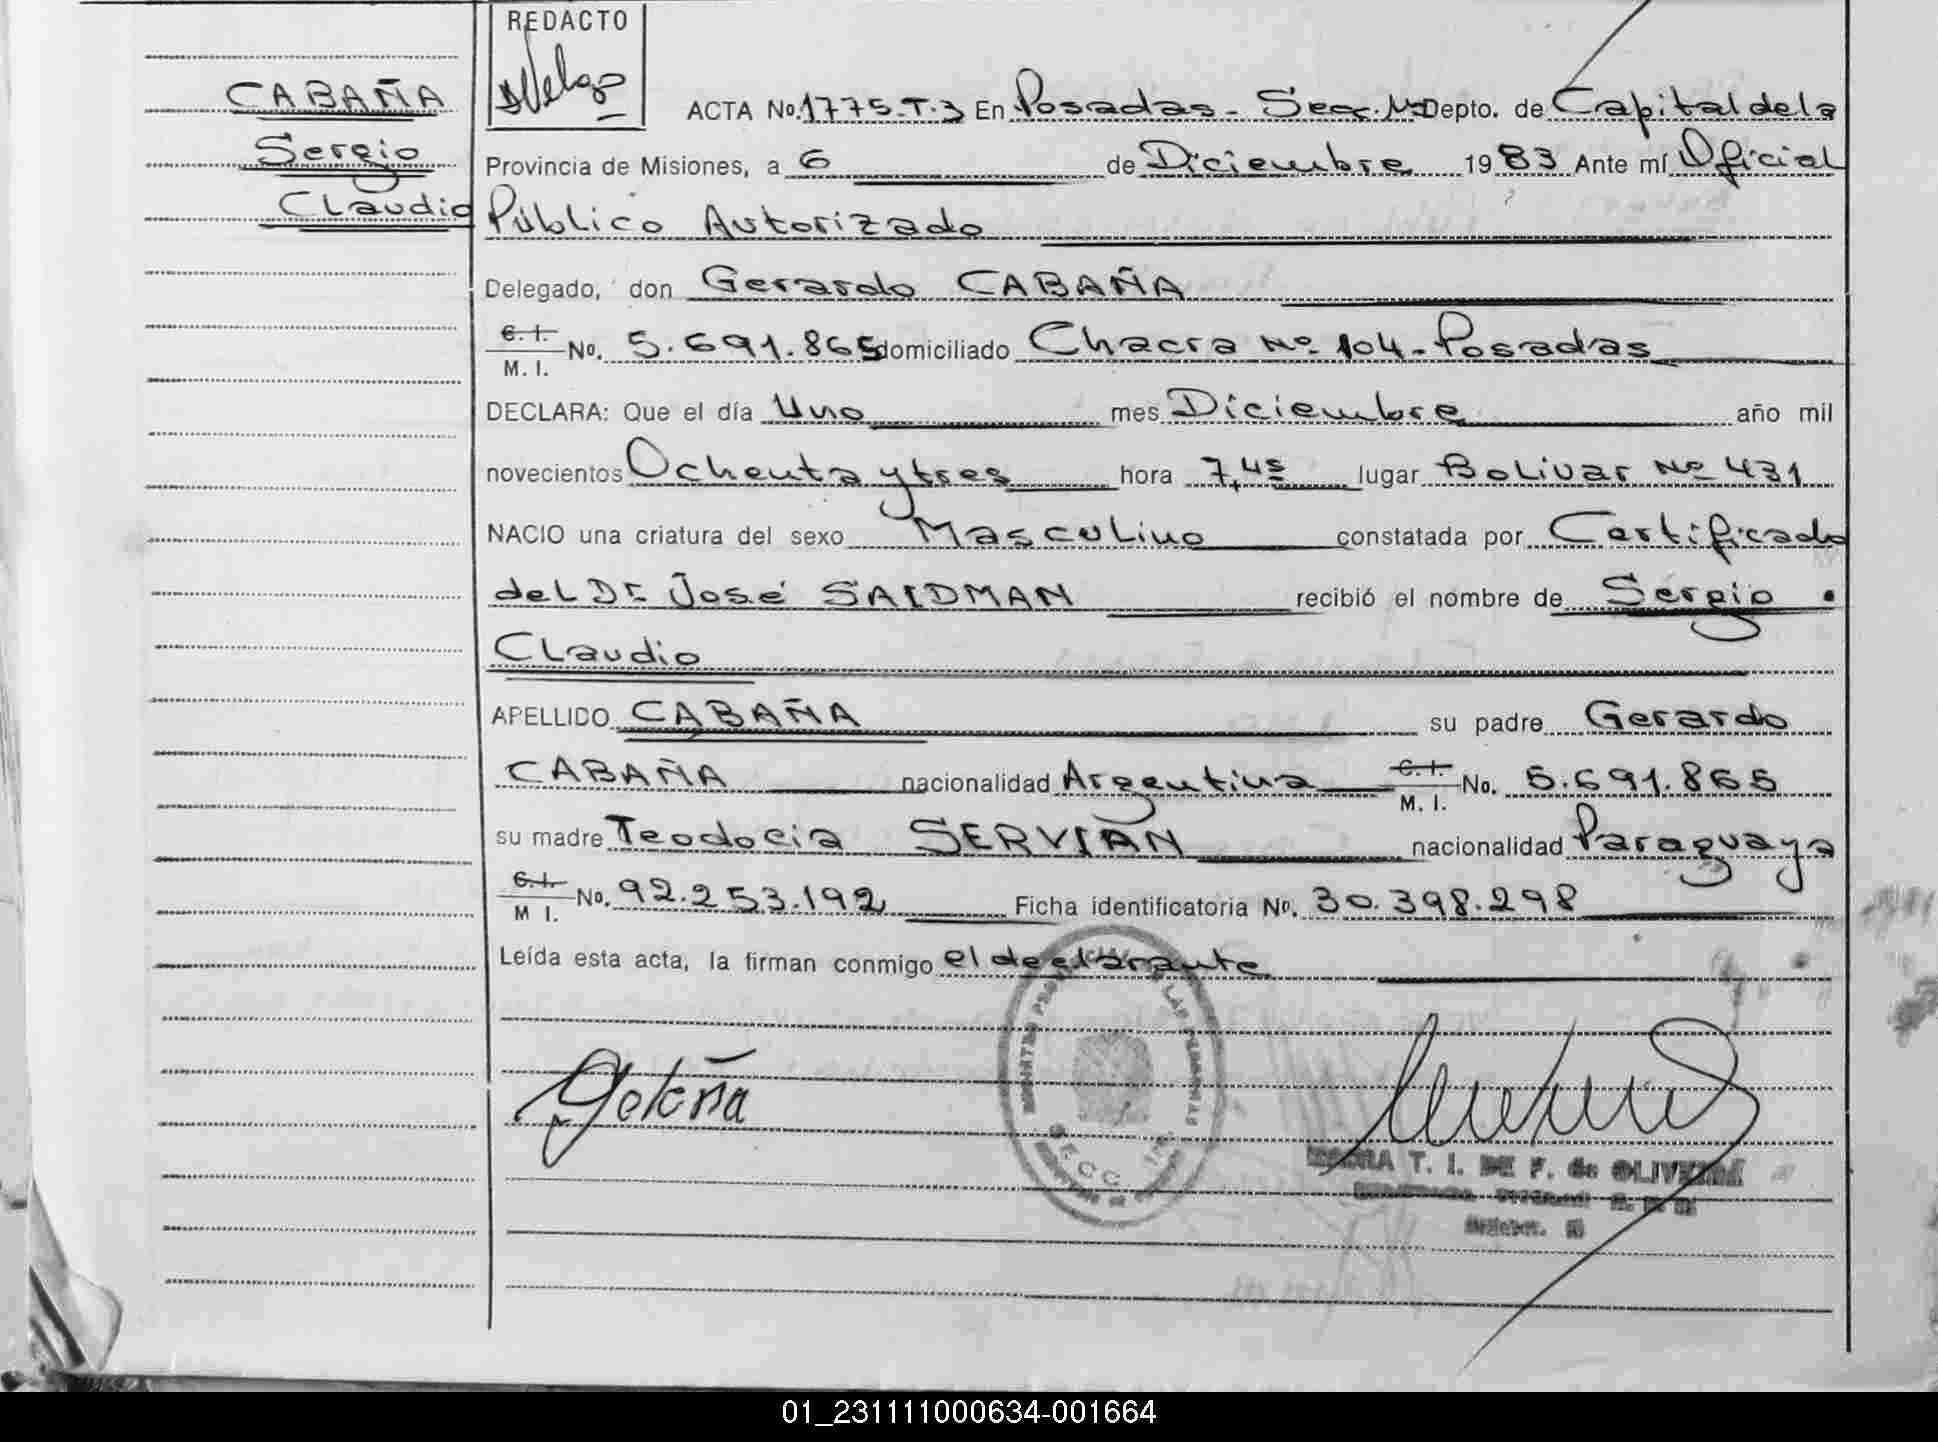 REDACTO
CABAÑA
Sergio
Claudio
ACTA No. 1775-T.3 En Posadas - Secc. Depto. de Capital de la
Provincia de Misiones, a 6 de Diciembre 1983 Ante mí Oficial
Público Autorizado
Delegado, don Gerardo CABAÑA
C. I.
M. I. No. 5.691.865 domiciliado Chacra Nº 104 - Posadas
DECLARA: Que el día Uno mes Diciembre año mil
novecientos Ochenta y tres hora 7,45 lugar Bolivar Nº 431
NACIO una criatura del sexo Masculino constatada por Certificado
del Dr. José SAIDMAN recibió el nombre de Sergio
Claudio
APELLIDO CABAÑA su padre Gerardo
CABAÑA nacionalidad Argentina C. I.
M. I. No. 5.691.865
su madre Teodocia SERVIAN nacionalidad Paraguaya
C. I.
M I. No. 92.253.192 Ficha identificatoria No. 30.398.298
Leída esta acta, la firman conmigo el declarante
MARIA T. I. DE F. de OLIVEIRA
01_231111000634-001664